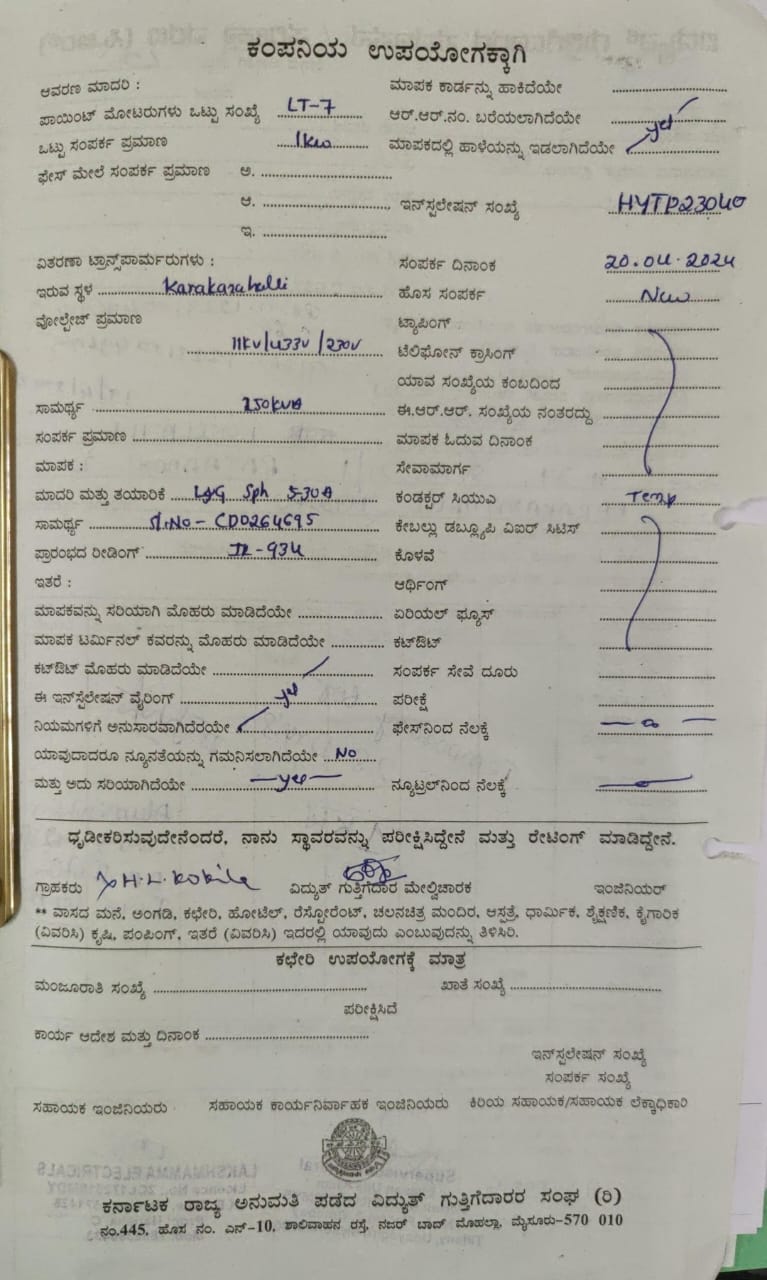 ಕಂಪನಿಯ ಉಪಯೋಗಕ್ಕಾಗಿ
ಆವರಣ ಮಾದರಿ :
ಮಾಪಕ ಕಾರ್ಡನ್ನು ಹಾಕಿದೆಯೇ
ಪಾಯಿಂಟ್ ಮೋಟರುಗಳು ಒಟ್ಟು ಸಂಖ್ಯೆ LT-7
ಆರ್.ಆರ್.ನಂ. ಬರೆಯಲಾಗಿದೆಯೇ
ಒಟ್ಟು ಸಂಪರ್ಕ ಪ್ರಮಾಣ 1kw
ಮಾಪಕದಲ್ಲಿ ಹಾಳೆಯನ್ನು ಇಡಲಾಗಿದೆಯೇ yes
ಫೇಸ್ ಮೇಲೆ ಸಂಪರ್ಕ ಪ್ರಮಾಣ ಅ.
ಆ.
ಇನ್‌ಸ್ಟಲೇಷನ್ ಸಂಖ್ಯೆ HYTP23040
ಇ.
ವಿತರಣಾ ಟ್ರಾನ್ಸ್‌ಫಾರ್ಮರುಗಳು :
ಸಂಪರ್ಕ ದಿನಾಂಕ 20.04.2024
ಇರುವ ಸ್ಥಳ Karakarahalli
ಹೊಸ ಸಂಪರ್ಕ New
ವೋಲ್ಟೇಜ್ ಪ್ರಮಾಣ
ಟ್ಯಾಪಿಂಗ್
11kv/433v/230v
ಟೆಲಿಫೋನ್ ಕ್ರಾಸಿಂಗ್
ಯಾವ ಸಂಖ್ಯೆಯ ಕಂಬದಿಂದ
ಸಾಮರ್ಥ್ಯ 250kVA
ಈ.ಆರ್.ಆರ್. ಸಂಖ್ಯೆಯ ನಂತರದ್ದು
ಸಂಪರ್ಕ ಪ್ರಮಾಣ
ಮಾಪಕ ಓದುವ ದಿನಾಂಕ
ಮಾಪಕ :
ಸೇವಾಮಾರ್ಗ
ಮಾದರಿ ಮತ್ತು ತಯಾರಿಕೆ L&G Sph 5-30A
ಕಂಡಕ್ಟರ್ ಸಿಯುಎ Temp
ಸಾಮರ್ಥ್ಯ Sl.No - CD0264695
ಕೇಬಲ್ಲು ಡಬ್ಲ್ಯೂಪಿ ವಿಐರ್ ಸಿಟಿಸ್
ಪ್ರಾರಂಭದ ರೀಡಿಂಗ್ IR-934
ಕೊಳವೆ
ಇತರೆ :
ಆರ್ಥಿಂಗ್
ಮಾಪಕವನ್ನು ಸರಿಯಾಗಿ ಮೊಹರು ಮಾಡಿದೆಯೇ
ಏರಿಯಲ್ ಫ್ಯೂಸ್
ಮಾಪಕ ಟರ್ಮಿನಲ್ ಕವರನ್ನು ಮೊಹರು ಮಾಡಿದೆಯೇ
ಕಟ್‌ಔಟ್
ಕಟ್‌ಔಟ್ ಮೊಹರು ಮಾಡಿದೆಯೇ
ಸಂಪರ್ಕ ಸೇವೆ ದೂರು
ಈ ಇನ್‌ಸ್ಟೆಲೇಷನ್ ವೈರಿಂಗ್ yes
ಪರೀಕ್ಷೆ
ನಿಯಮಗಳಿಗೆ ಅನುಸಾರವಾಗಿದೆರಯೇ
ಫೇಸ್‌ನಿಂದ ನೆಲಕ್ಕೆ
ಯಾವುದಾದರೂ ನ್ಯೂನತೆಯನ್ನು ಗಮನಿಸಲಾಗಿದೆಯೇ No
ಮತ್ತು ಅದು ಸರಿಯಾಗಿದೆಯೇ — yes —
ನ್ಯೂಟ್ರಲ್‌ನಿಂದ ನೆಲಕ್ಕೆ
ಧೃಡೀಕರಿಸುವುದೇನೆಂದರೆ, ನಾನು ಸ್ಥಾವರವನ್ನು ಪರೀಕ್ಷಿಸಿದ್ದೇನೆ ಮತ್ತು ರೇಟಿಂಗ್ ಮಾಡಿದ್ದೇನೆ.
ಗ್ರಾಹಕರು H.L.
ವಿದ್ಯುತ್ ಗುತ್ತಿಗೆದಾರ ಮೇಲ್ವಿಚಾರಕ
ಇಂಜಿನಿಯರ್
** ವಾಸದ ಮನೆ, ಅಂಗಡಿ, ಕಛೇರಿ, ಹೋಟೆಲ್, ರೆಸ್ಟೋರೆಂಟ್, ಚಲನಚಿತ್ರ ಮಂದಿರ, ಆಸ್ಪತ್ರೆ, ಧಾರ್ಮಿಕ, ಶೈಕ್ಷಣಿಕ, ಕೈಗಾರಿಕ
(ವಿವರಿಸಿ) ಕೃಷಿ, ಪಂಪಿಂಗ್, ಇತರೆ (ವಿವರಿಸಿ) ಇದರಲ್ಲಿ ಯಾವುದು ಎಂಬುವುದನ್ನು ತಿಳಿಸಿರಿ.
ಕಛೇರಿ ಉಪಯೋಗಕ್ಕೆ ಮಾತ್ರ
ಮಂಜೂರಾತಿ ಸಂಖ್ಯೆ
ಖಾತೆ ಸಂಖ್ಯೆ
ಪರೀಕ್ಷಿಸಿದೆ
ಕಾರ್ಯ ಆದೇಶ ಮತ್ತು ದಿನಾಂಕ
ಇನ್‌ಸ್ಟಲೇಷನ್ ಸಂಖ್ಯೆ
ಸಂಪರ್ಕ ಸಂಖ್ಯೆ
ಸಹಾಯಕ ಇಂಜಿನಿಯರು ಸಹಾಯಕ ಕಾರ್ಯನಿರ್ವಾಹಕ ಇಂಜಿನಿಯರು ಕಿರಿಯ ಸಹಾಯಕ/ಸಹಾಯಕ ಲೆಕ್ಕಾಧಿಕಾರಿ
ಕರ್ನಾಟಕ ರಾಜ್ಯ ಅನುಮತಿ ಪಡೆದ ವಿದ್ಯುತ್ ಗುತ್ತಿಗೆದಾರರ ಸಂಘ (ರಿ)
ನಂ.445, ಹೊಸ ನಂ. ಎನ್-10, ಶಾಲಿವಾಹನ ರಸ್ತೆ, ನಜರ್ ಬಾದ್ ಮೊಹಲ್ಲಾ, ಮೈಸೂರು-570 010